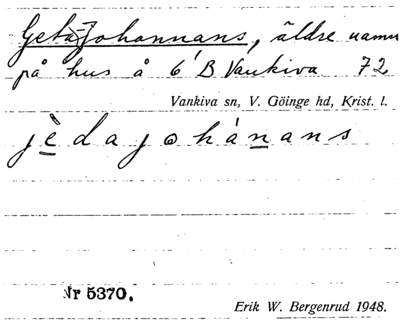 Geta-Johannans, äldre namn
på hus å 6 B Vankiva 72
Vankiva sn, V. Göinge hd, Krist. l.
jèdajohánans
Nr 5370.
Erik W. Bergenrud 1948.